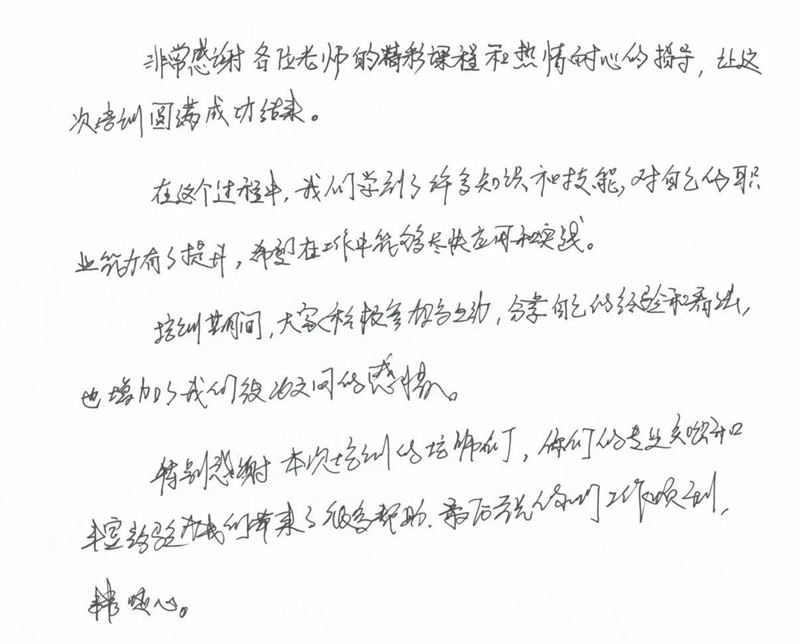 非常感谢各位老师的精彩课程和热情耐心的指导，让这
次培训圆满成功结束。
在这个过程中，我们学到了许多知识和技能，对自己的职
业能力有了提升，希望在工作中能够尽快应用和实践。
培训期间，大家积极参加与互动，分享自己的经验和看法，
也增加了我们彼此之间的感情。
特别感谢本次培训的培师们，你们的专业知识和
丰富经验为我们带来了很多帮助。最后祝你们工作顺利，